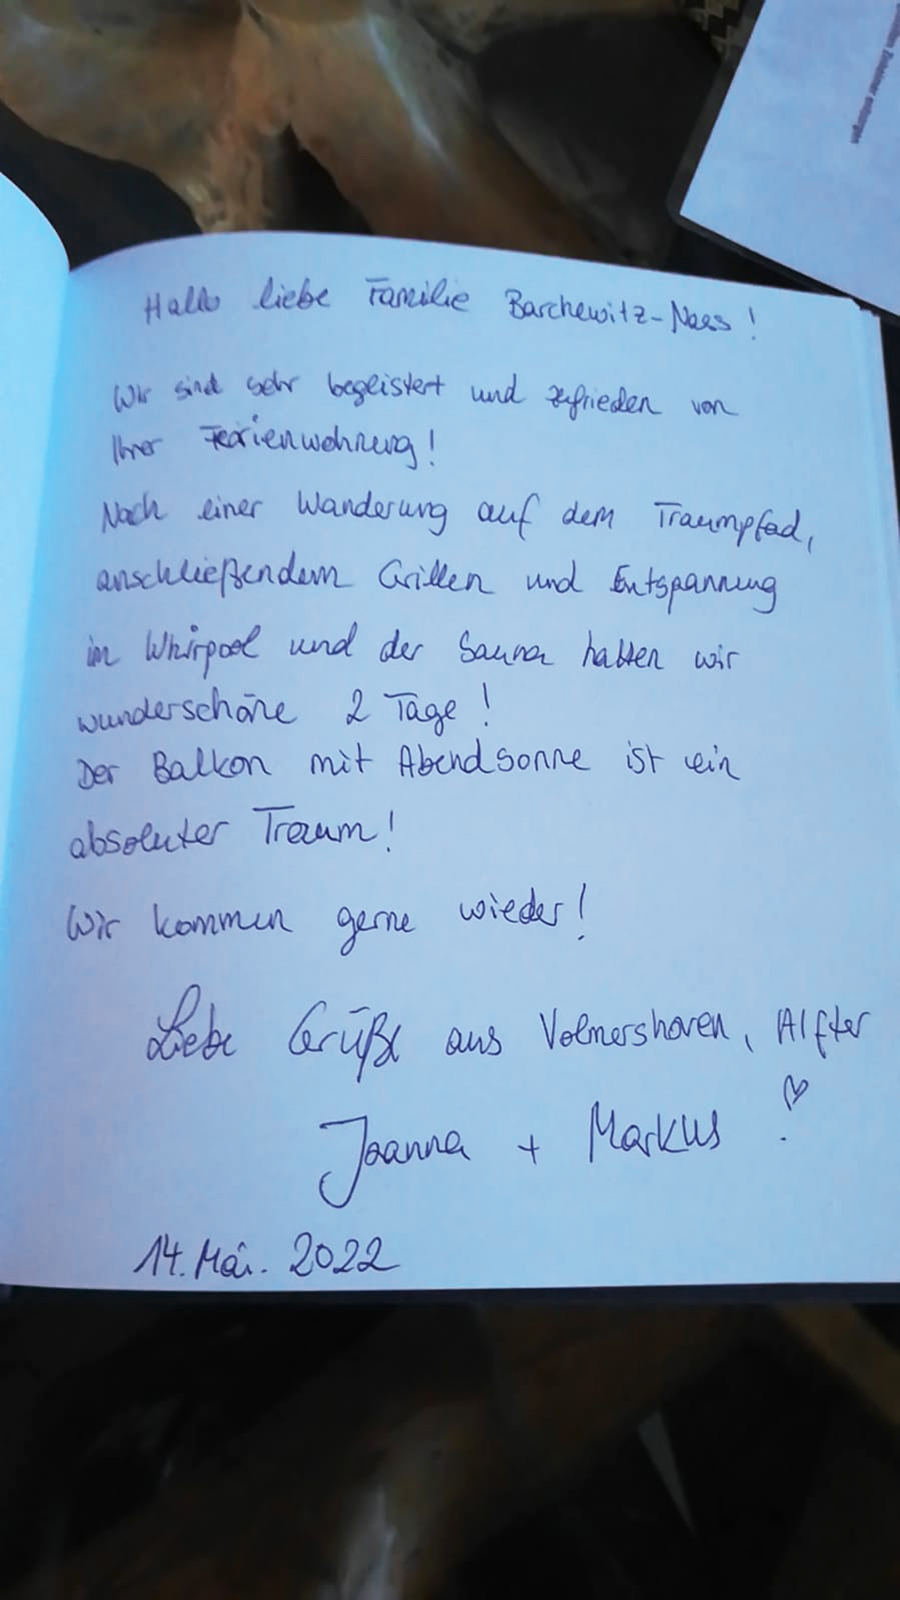 Hallo liebe Familie Barchewitz-Naes!
Wir sind sehr begeistert und zufrieden von
Ihrer Ferienwohnung!
Nach einer Wanderung auf dem Traumpfad,
anschließendem Grillen und Entspannung
im Whirpool und der Sauna hatten wir
wunderschöne 2 Tage!
Der Balkon mit Abendsonne ist ein
absoluter Traum!
Wir kommen gerne wieder!
Liebe Grüße aus Volmershoven, Alfter
Joanna + Markus
14. Mai. 2022